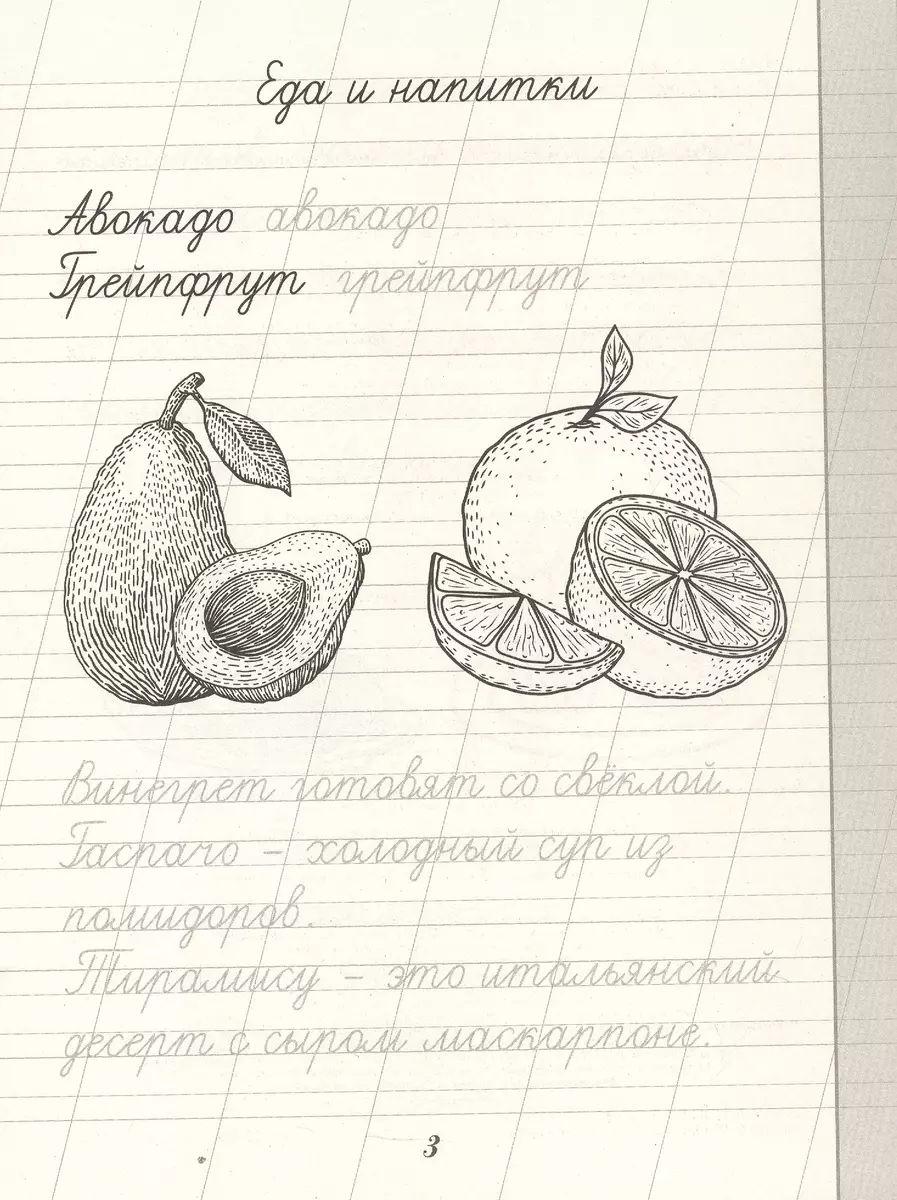 Еда и напитки
Авокадо авокадо
Грейпфрут грейпфрут
Винегрет готовят со свёклой.
Гаспачо – холодный суп из
помидоров.
Тирамису – это итальянский
десерт с сыром маскарпоне.
3